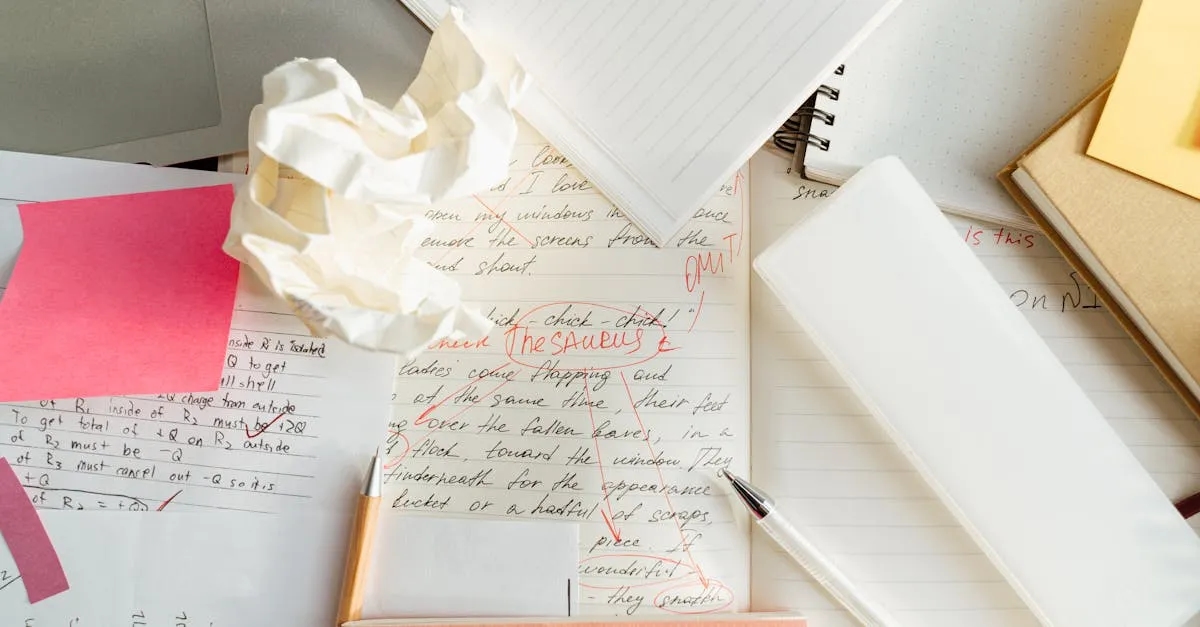 inside R₁ is isolated
Q to get
all shell
+2Q charge from outside
of R₁ inside of R₂ must be +2Q
To get total of +Q on R₂ outside
of R₂ must be -Q
of R₃ must cancel out -Q so it is
+Q
of R₂ = +Q
look
I love
open my windows in once
emove the screens from the
and shout.
OMIT
ick - chick - chick!"
check THESAURUS
ladies come flapping and
at the same time, their feet
ng over the fallen leaves, in a
flock, toward the window. They
underneath for the appearance
bucket or a hatful of scraps,
piece. If
wonderful
- they snatch
sna
is this
on